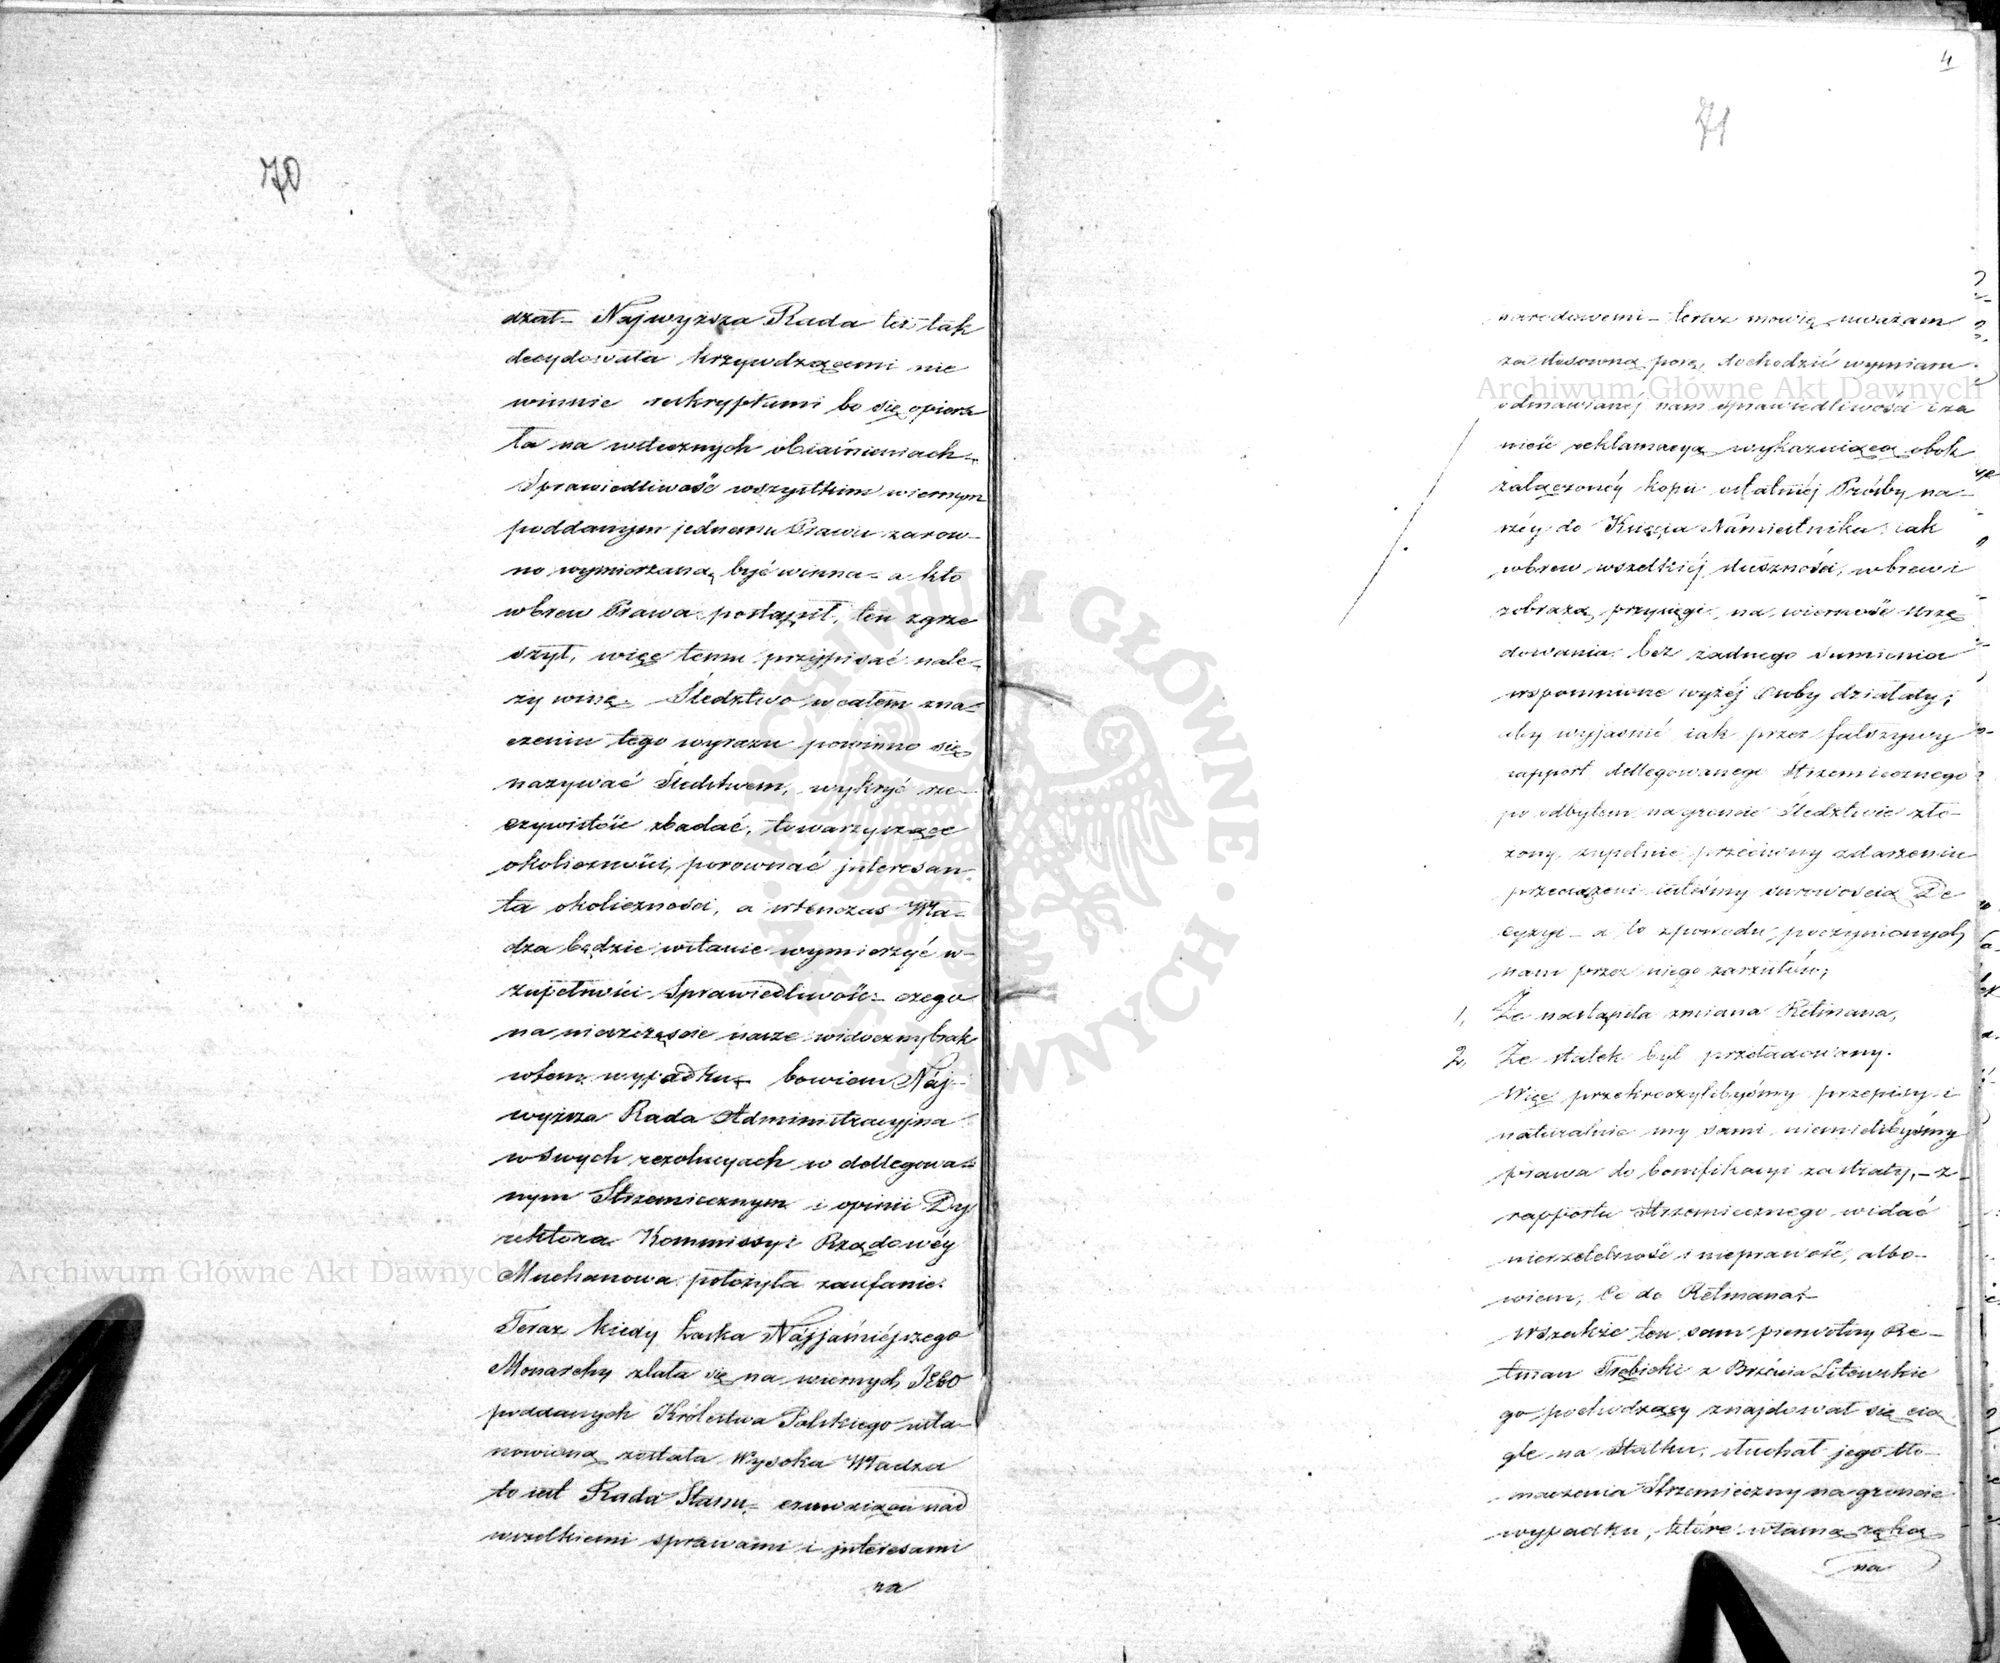 70
dzał – Najwyższa Rada też tak
decydowała krzywdzącemi nie
winnie reskryptami bo się opiera
ła na wstecznych obiaśnieniach –
Sprawiedliwość wszystkim wiernym
poddanym jednemu Prawu zarow–
no wymierzaną być winna – a kto
wbrew Prawa postąpił, ten zgrze
szył, więc temu przypisać nale–
ży winę. Śledztwo w całem zna–
czeniu tego wyrazu powinno się
nazywać Śledztwem, wykryć rze–
czywistość zbadać, towarzyszące
okoliczności, porownać interesan
ta okoliczności, a wtenczas Wła–
dza będzie wstanie wymierzyć w–
zupełności Sprawiedliwość – czego
na nieszczęście nasze widoczny brak
wtem wypadku – bowiem Náj–
wyższa Rada Administracyjna
w swych rezolucyach w dellegowa–
nym Strzemiecznym i opinii Dy
rektora Kommissyi Rządowéy
Muchanowa położyła zaufanie.
Teraz kiedy Łaska Nájjaśniéjszego
Monarchy zlała się na wiernych Jego
poddanych Królestwa Polskiego usta–
nowioną została Wysoka Władza
to iest Rada Stanu – czuwaiąca nad
wszelkiemi sprawami i interesami
na
4
71
narodowemi – teraz mowię uważam
za stosowną porę, dochodzić wymiaru
odmawianéj nam sprawiedliwości i za
nieść reklamacyą wykazuiącą obok
załączonéy kopii ostatniéj Prośby na–
széy do Księcia Namiestnika iak
wbrew wszelkiéj słuszności, wbrew i
zobrazą przysięgi, na wierność urzę
dowania bez żadnego sumienia
wspomnione wyżéj Osoby działały;
aby wyjaśnić iak przez fałszywy
rapport dellegowanego Strzemiecznego
po odbytem na gruncie Śledztwie zło–
żony zupełnie przeciwny zdarzeniu
przeciążeni iesteśmy surowością De
cyzyi – a to zpowodu poczynionych
nam przez niego zarzutów;
1, Że nastąpiła zmiana Retmana,
2, Że statek był przeładowany.
Więc przekroczylibyśmy przepisy i
naturalnie my sami niemielibyśmy
prawa do bonifikacyi za straty, – z
rapportu Strzemiecznego widać
nierzetelność i nieprawość, albo–
wiem, Co do Retmana –
Wszakże ten sam pierwotny Re–
tman Trębicki z Brześcia Litewskie
go pochodzący znajdował się cią
gle na Statku, słuchał jego tło–
maczenia Strzemieczny na gruncie
wypadku, które własną ręką
na
Archiwum Główne Akt Dawnych
Archiwum Główne Akt Dawnych